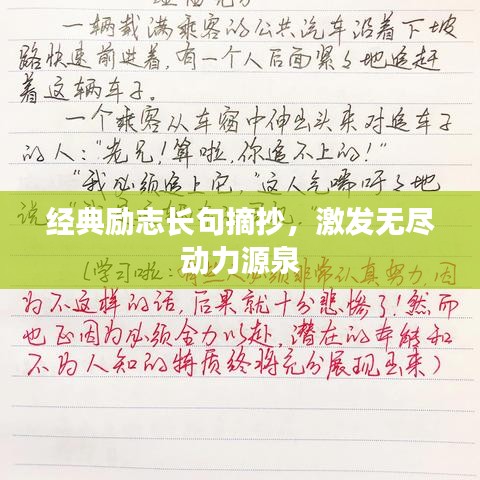 一辆载满乘客的公共汽车沿着下坡
路快速前进着,有一个人后面紧紧地追赶
着这辆车子。
一个乘客从车窗中伸出头来对追车子
的人:"老兄!算啦,你追不上的!"
"我必须追上它,"这人气喘吁吁地
说
经典励志长句摘抄，激发无尽
动力源泉
(学习啦: 非常认真努力,因
为不这样的话,后果就十分悲惨了!然而
也正因为必须全力以赴,潜在的本能和
不为人知的特质终将充分展现出来)